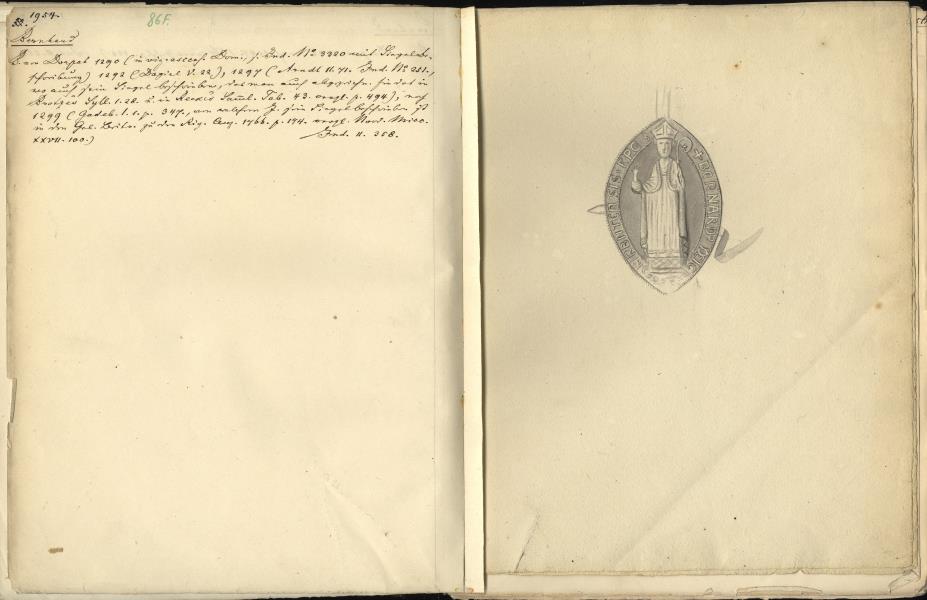 1954.
86F.
Bernhard
B. von Dorpat 1290 (in vig. ascens. Dom., s. Ind. No 3320 mit Siegelbe-
schreibung) 1292 (Dogiel V. 22), 1297 (Arndt II. 71. Ind. No 251.,
wo auch sein Siegel beschrieben, das man auch abgezeichn. findet in
Brotzes Syll. 1. 22. u. in Samml. Tab. 43. vergl. p. 494), noch
1299 (Gadeb. 1. 1. p. 347., von welchem J. sein Siegel beschrieben ist
in den Gel. Beitr. zu den Rig. Anz. 1766. p. 174. vergl. Nord. Misc.
XXVII. 100.)
Ind. II. 358.